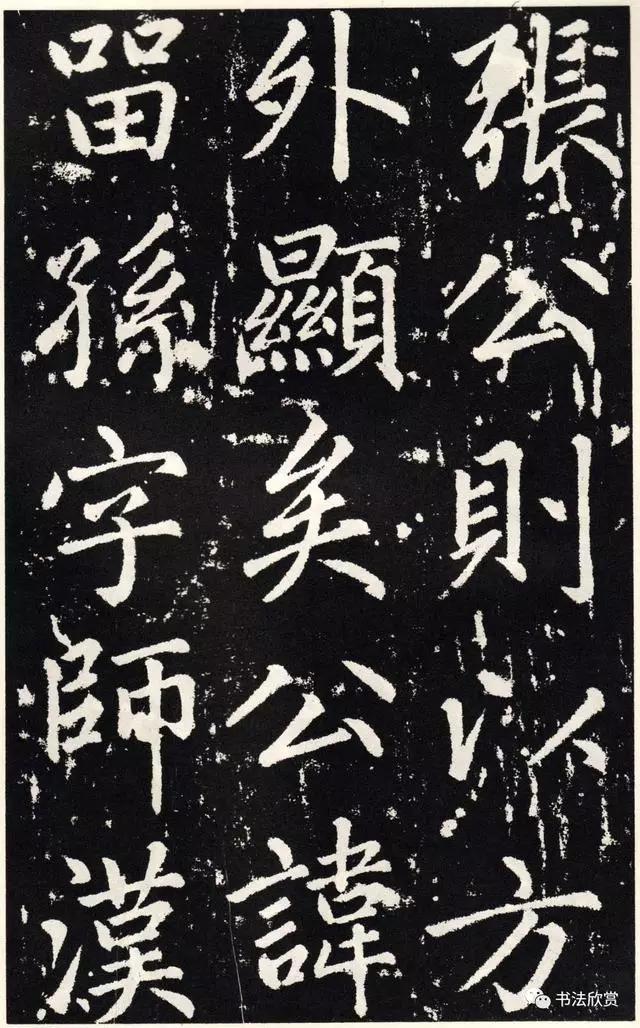 張公則以方
外顯矣公諱
㽞孫字師漢
书法欣赏